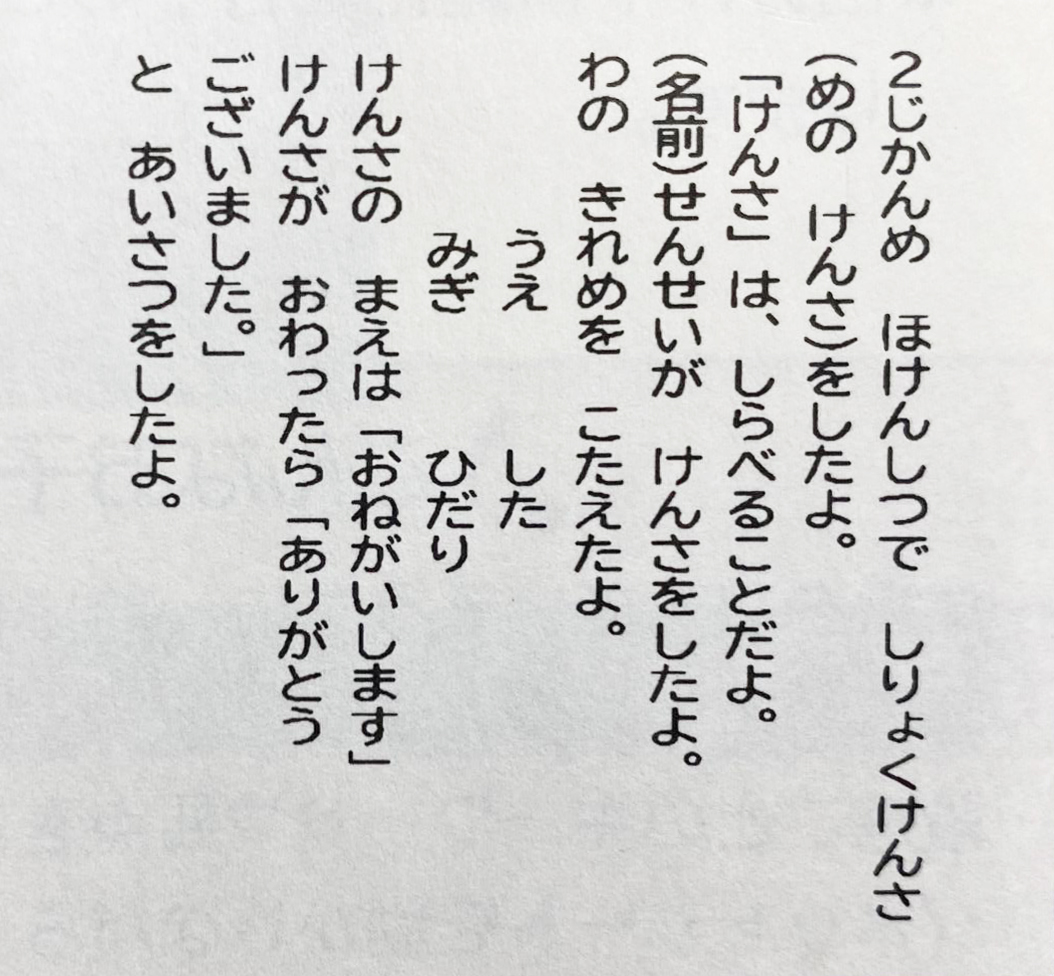 ２じかんめ　ほけんしつで　しりょくけんさ
（めの　けんさ）をしたよ。
「けんさ」は、しらべることだよ。
（名前）せんせいが　けんさをしたよ。
わの　きれめを　こたえたよ。
うえ　　　した
みぎ　　　ひだり
けんさの　まえは「おねがいします」
けんさが　おわったら「ありがとう
ございました。」
と　あいさつをしたよ。